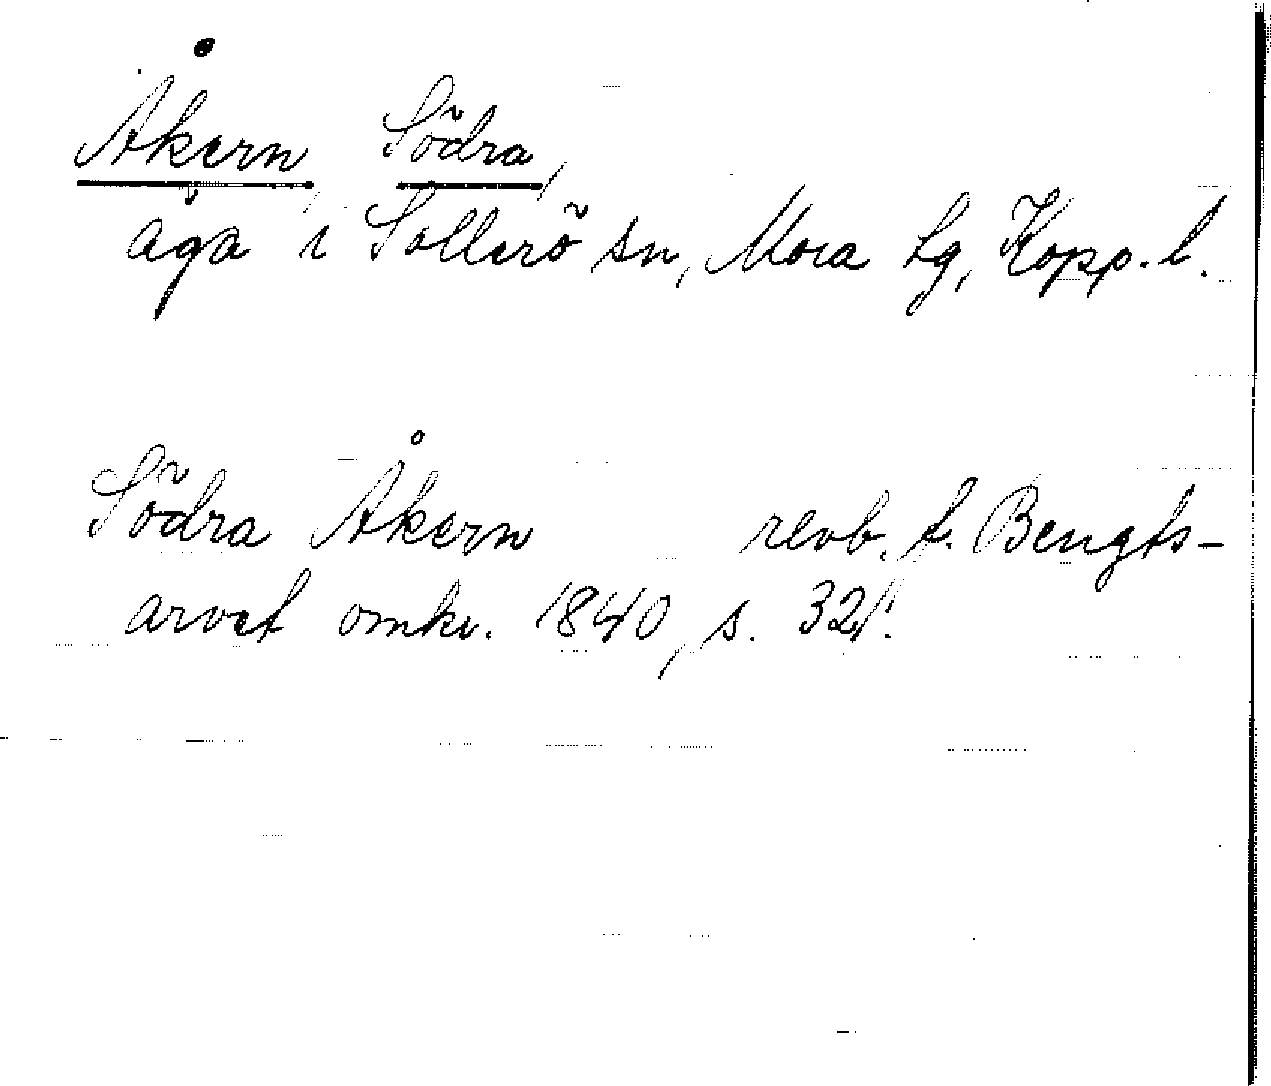 Åkern, Södra,
äga i Sollerö sn, Mora tg, Kopp. l.
Södra Åkern revb. f. Bengts-
arvet omkr. 1840, s. 321.